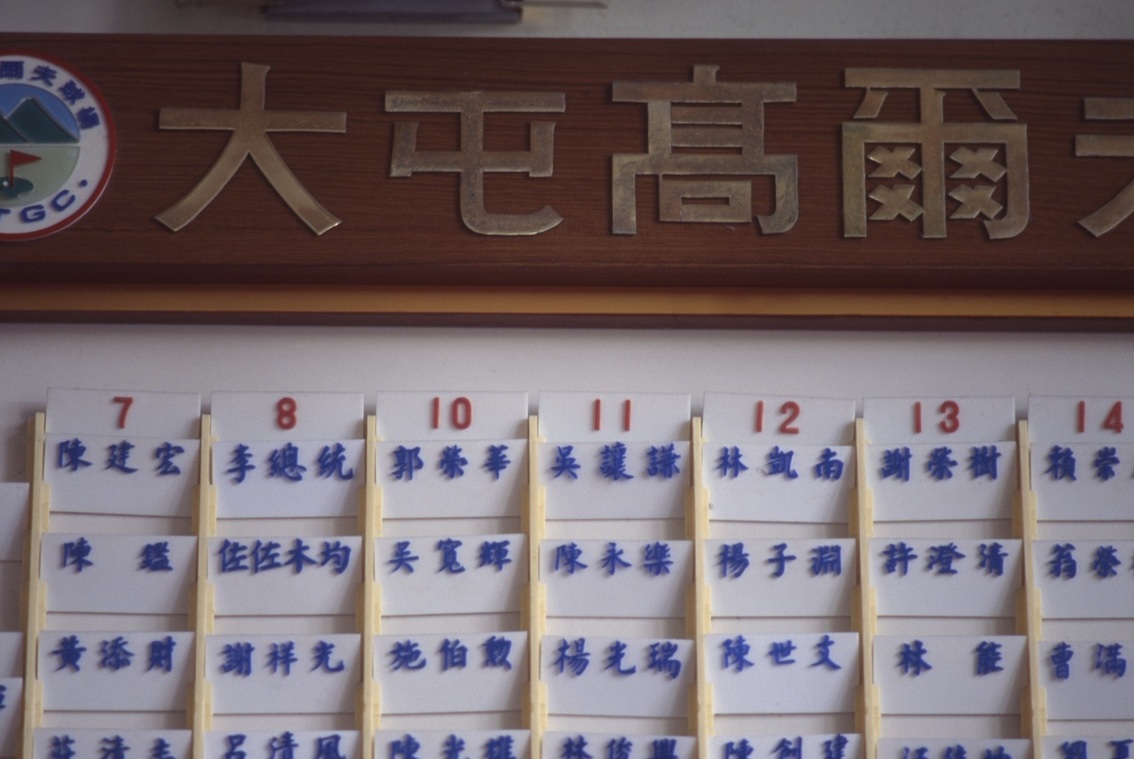 爾夫球場
TGC.
大屯高爾夫
7 8 10 11 12 13 14
陳建宏 李總統 郭榮華 吳讓謙 林凱南 謝榮樹 賴崇
陳鑑 佐佐木均 吳寬輝 陳永樂 楊子淵 許澄清 翁榮
黃添財 謝祥光 施伯勳 楊光瑞 陳世艾 林能 曹滿
莊清 呂清風 陳光 林俊興 陳創建